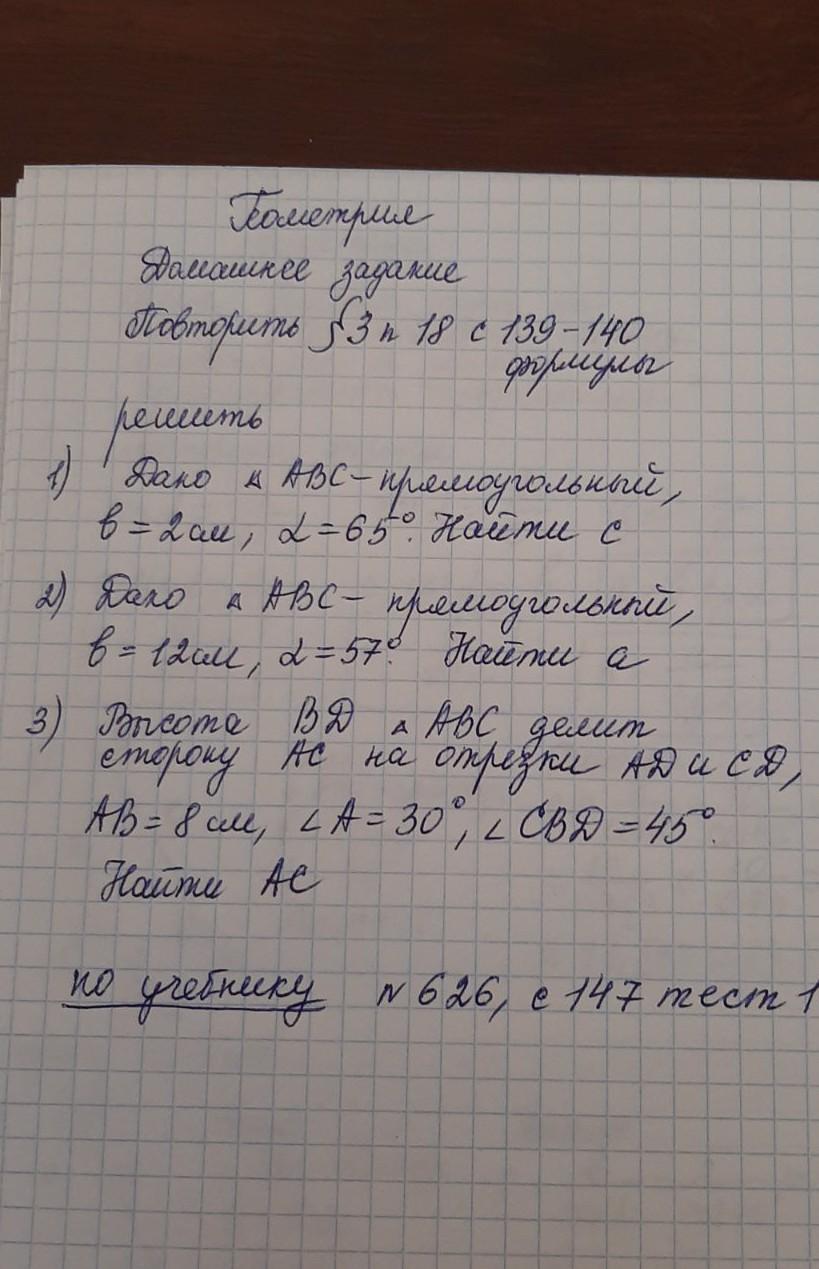 Геометрия
Домашнее задание
Повторить §3 п 18 с 139-140
формулы
решить
1) Дано △ ABC-прямоугольный,
b=2см, α=65°. Найти c
2) Дано △ ABC- прямоугольный,
b=12см, α=57°. Найти a
3) Высота BD △ ABC делит
сторону AC на отрезки AD и CD,
AB=8см, ∠A=30°, ∠CBD=45°.
Найти AC
по учебнику N 626, с 147 тест 1